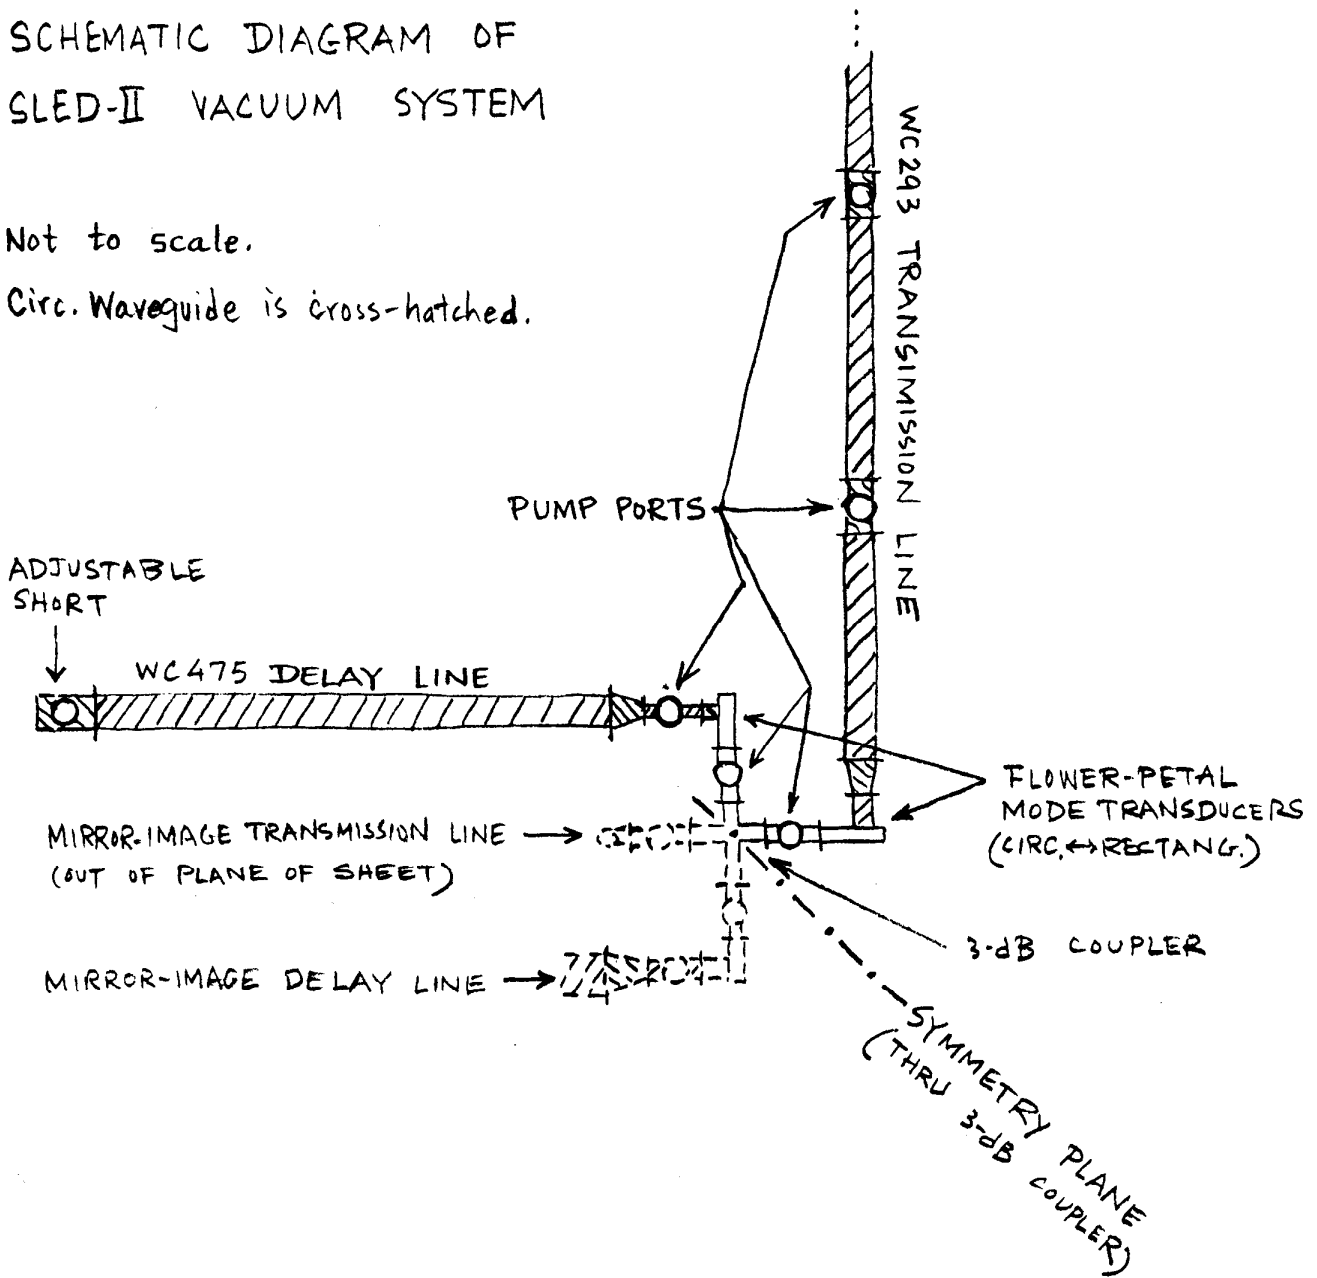 SCHEMATIC DIAGRAM OF
SLED-II VACUUM SYSTEM
Not to scale.
Circ. Waveguide is cross-hatched.
WC293 TRANSIMISSION LINE
PUMP PORTS
ADJUSTABLE
SHORT
WC475 DELAY LINE
FLOWER-PETAL
MODE TRANSDUCERS
(CIRC.↔RECTANG.)
MIRROR-IMAGE TRANSMISSION LINE
(OUT OF PLANE OF SHEET)
3-dB COUPLER
MIRROR-IMAGE DELAY LINE
SYMMETRY PLANE
(THRU 3-dB COUPLER)